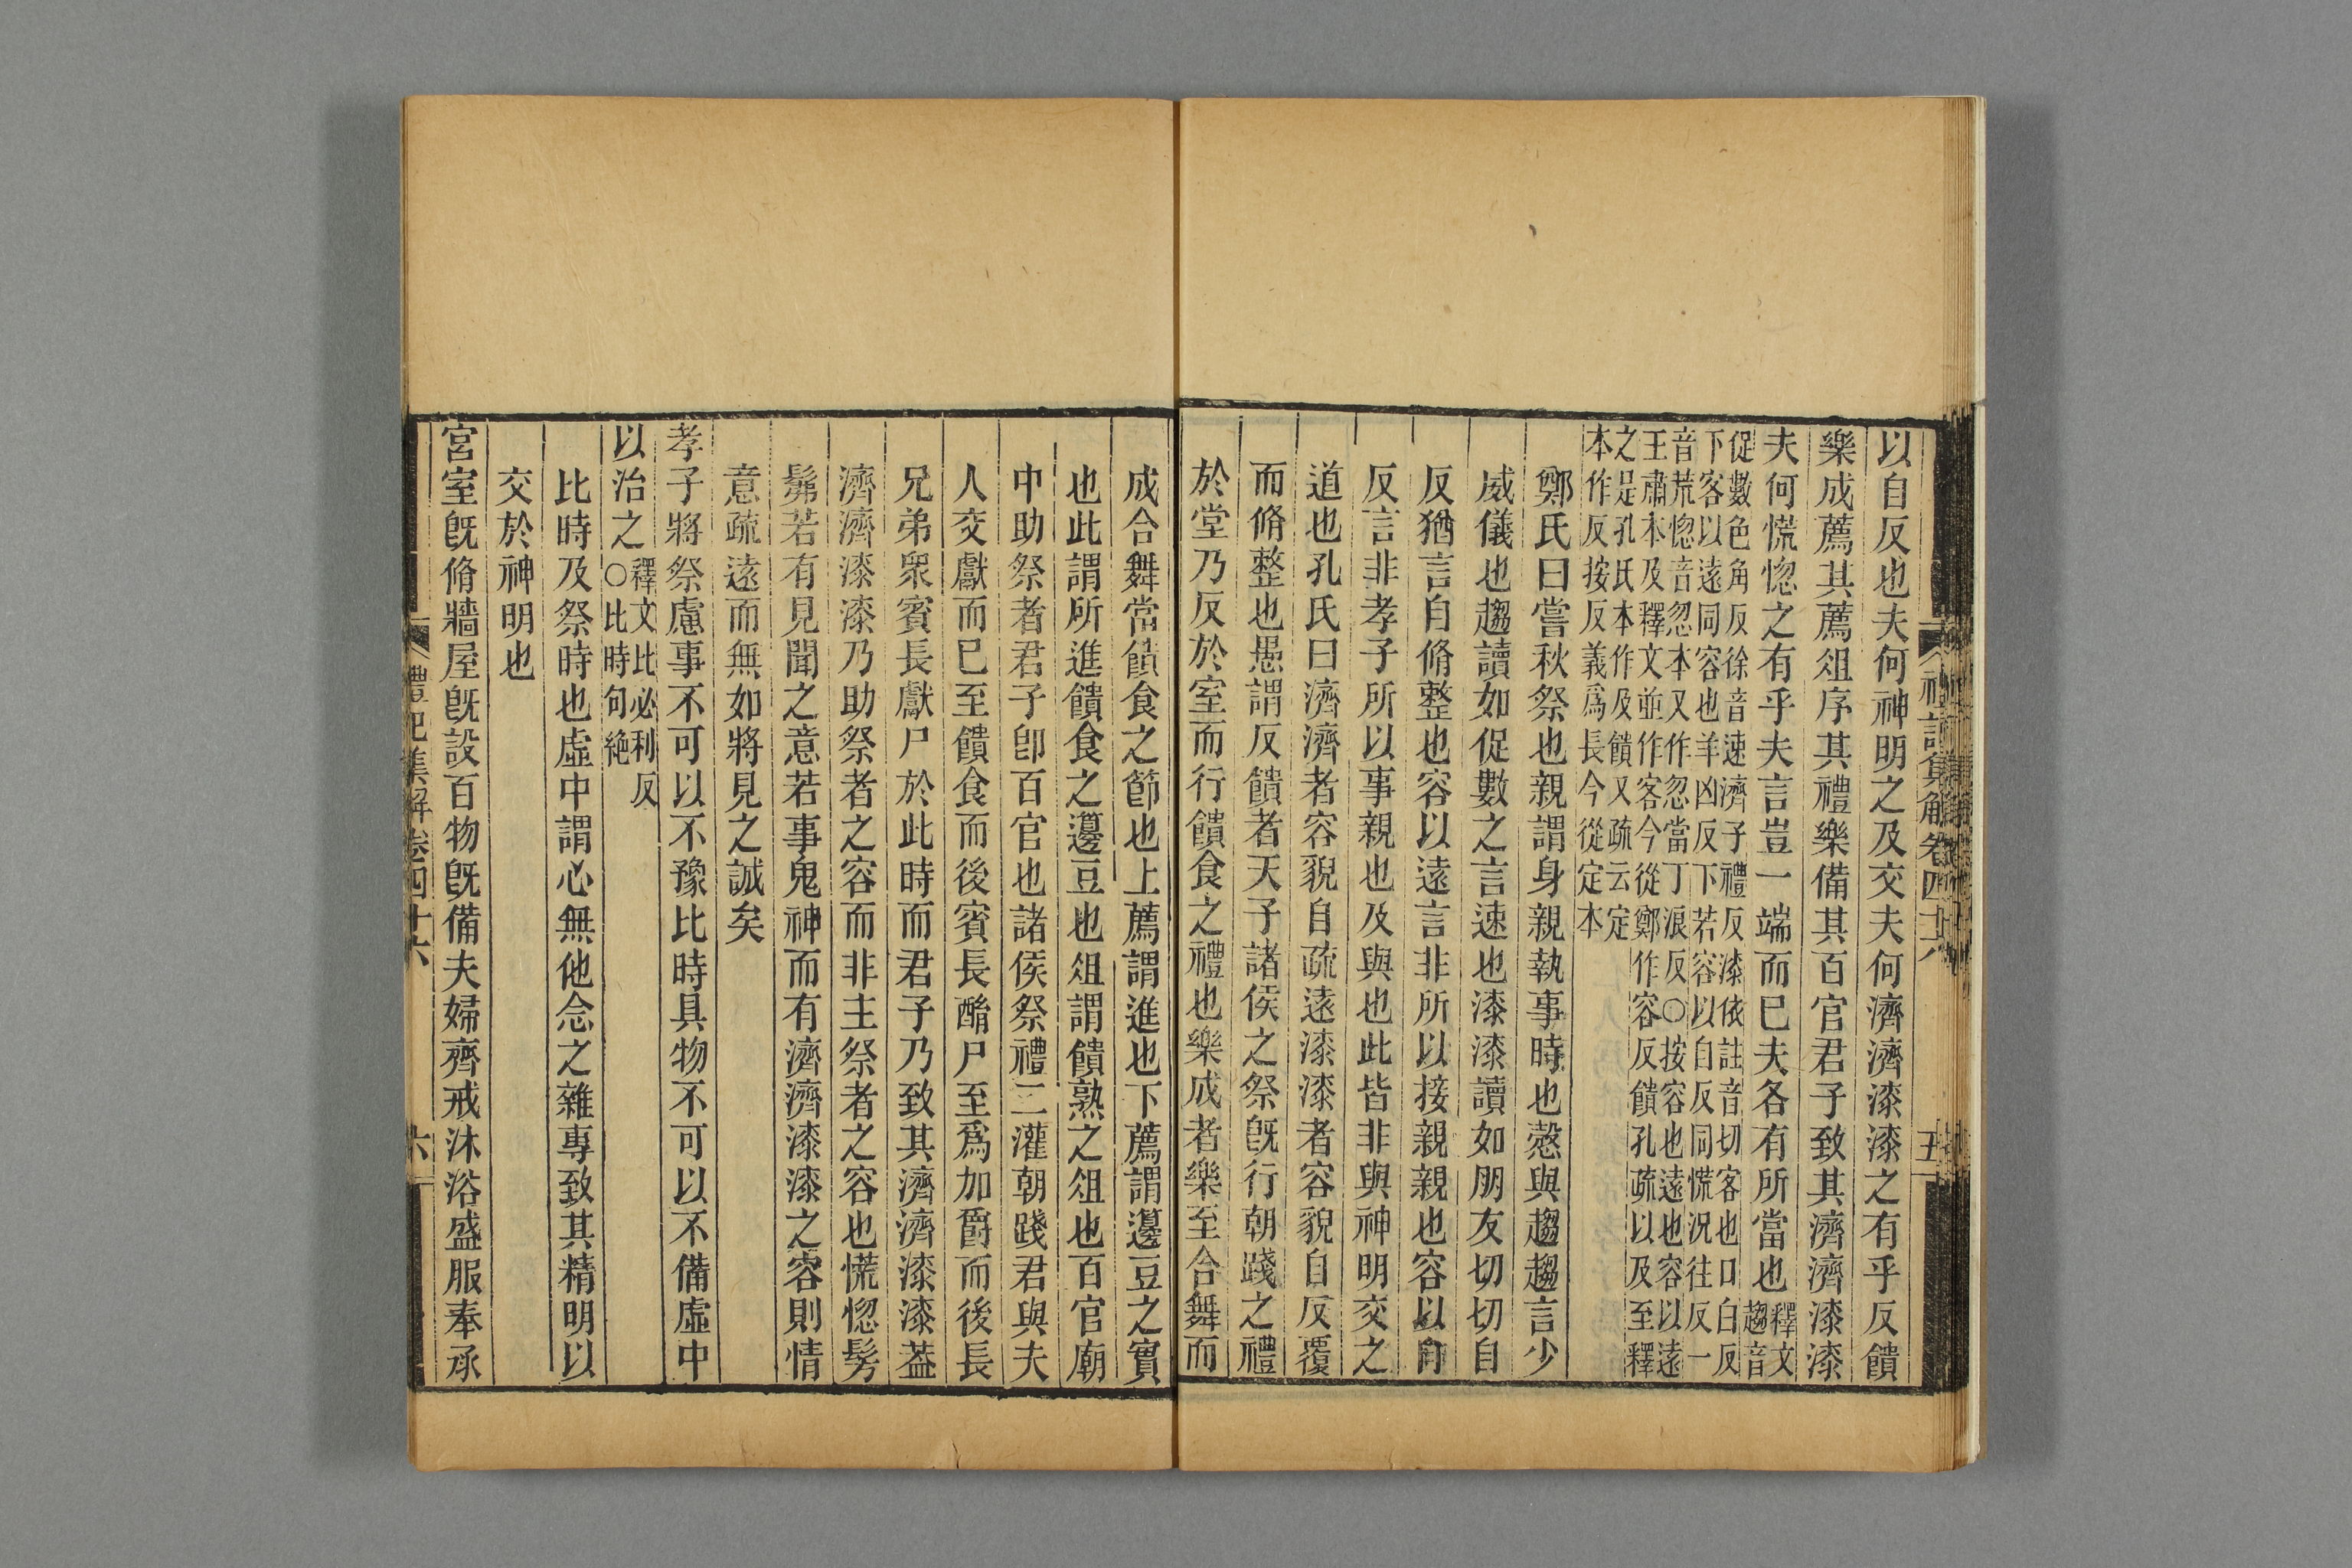 以自反也夫何神明之及交夫何濟濟漆漆之有乎反饋
樂成薦其薦俎序其禮樂備其百官君子致其濟濟漆漆
夫何慌惚之有乎夫言豈一端而已夫各有所當也釋文趨音
促數色角反徐音速濟子禮反漆依註音切客也口白反
下客以遠同容也羊凶反下若容以自反同慌況往反一
音荒惚音忽本又作忽當丁浪反○按容也遠也容以遠
王肅本及釋文並作客今從鄭作容反饋孔疏以及至釋
之是孔氏本作及饋又疏云定
本作反按反義爲長今從定本
鄭氏曰嘗秋祭也親謂身親執事時也愨與趨趨言少
威儀也趨讀如促數之言速也漆漆讀如朋友切切自
反猶言自脩整也容以遠言非所以接親親也容以自
反言非孝子所以事親也及與也此皆非與神明交之
道也孔氏曰濟濟者容貌自疏遠漆漆者容貌自反覆
而脩整也愚謂反饋者天子諸侯之祭旣行朝踐之禮
於堂乃反於室而行饋食之禮也樂成者樂至合舞而
成合舞當饋食之節也上薦謂進也下薦謂籩豆之實
也此謂所進饋食之籩豆也俎謂饋熟之俎也百官廟
中助祭者君子卽百官也諸侯祭禮二灌朝踐君與夫
人交獻而已至饋食而後賓長酳尸至爲加爵而後長
兄弟衆賓長獻尸於此時而君子乃致其濟濟漆漆葢
濟濟漆漆乃助祭者之容而非主祭者之容也慌惚髣
髴若有見聞之意若事鬼神而有濟濟漆漆之容則情
意疏遠而無如將見之誠矣
孝子將祭慮事不可以不豫比時具物不可以不備虛中
以治之釋文比必利反○比時句絶
比時及祭時也虛中謂心無他念之雜專致其精明以
交於神明也
宮室旣脩牆屋旣設百物旣備夫婦齊戒沐浴盛服奉承
禮記集解卷四十六
五
禮記集解卷四十六
六